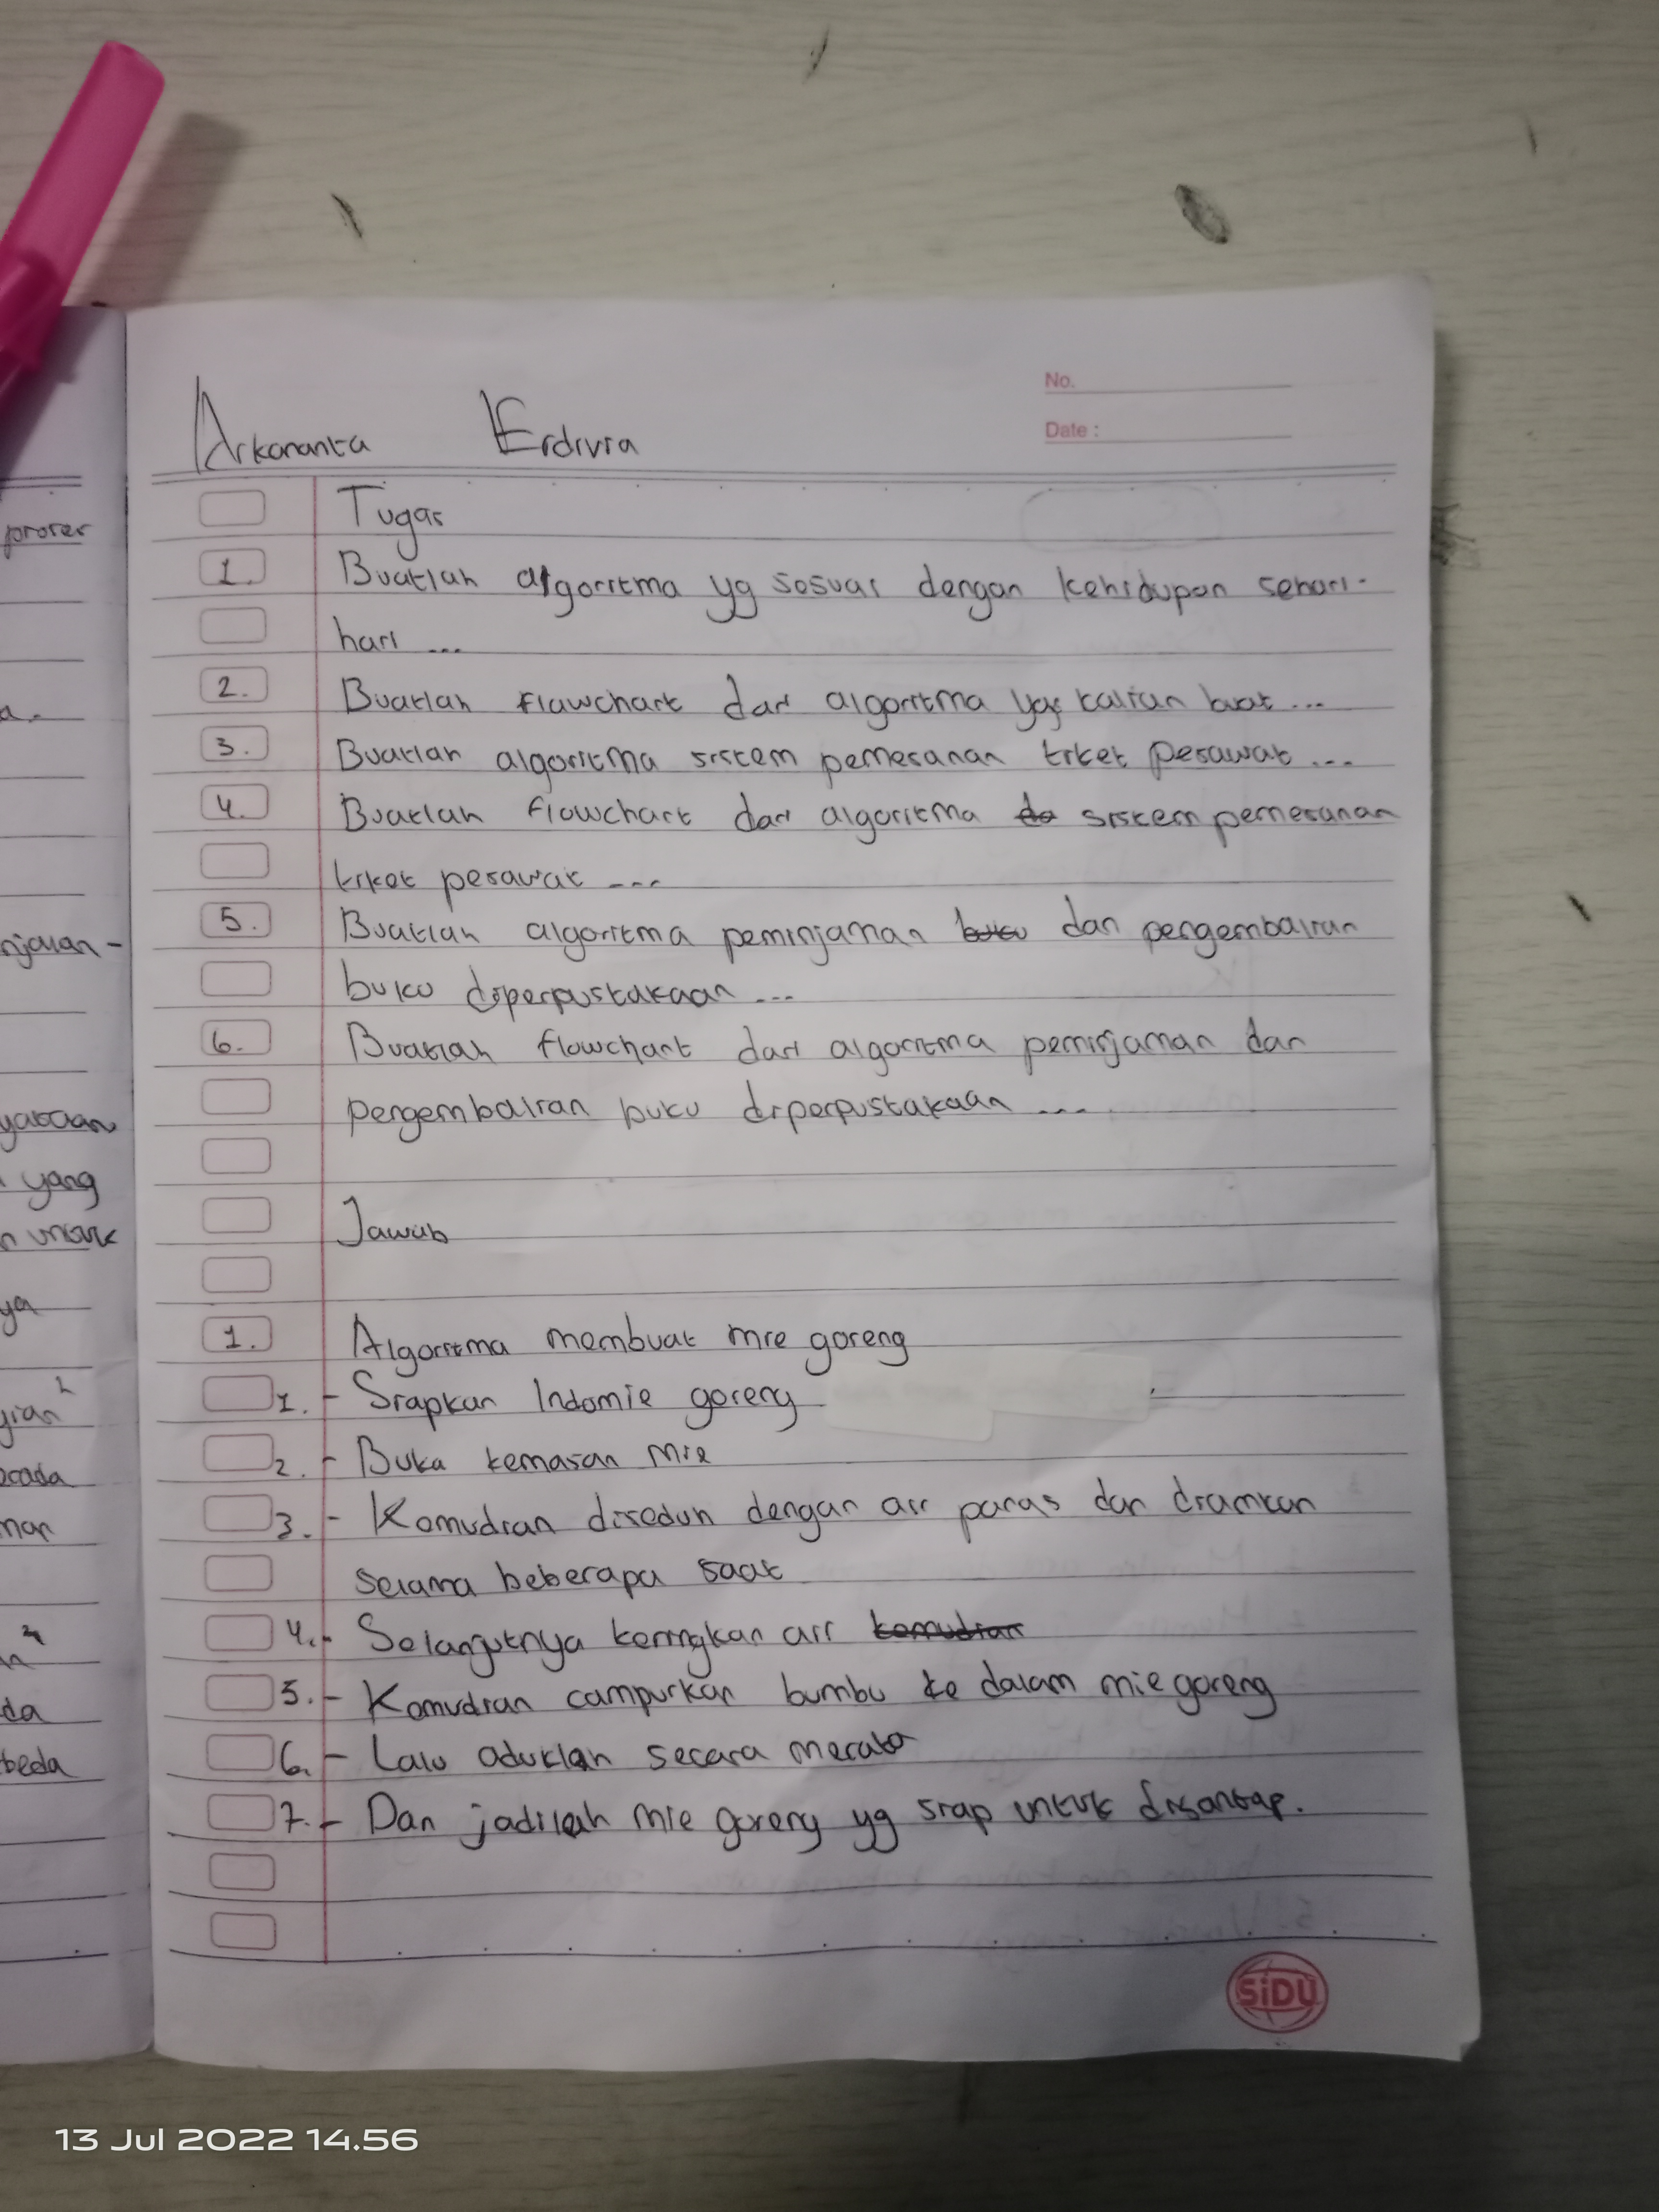 Arkananta Erdivia
No.
Date :
Tugas
1. Buatlah algoritma yg sosuai dengan kehidupan sehari-
hari ...
2. Buatlah flawchart dari algoritma yg kalian buat ...
3. Buatlah algoritma sistem pemesanan tiket pesawat ...
4. Buatlah flowchart dari algoritma sistem pemesanan
tiket pesawat ...
5. Buatlah algoritma peminjaman buku dan pengembalian
buku diperpustakaan ...
6. Buatlah flowchart dari algoritma peminjaman dan
pengembalian buku diperpustakaan ...
Jawab
1. Algoritma membuat mie goreng
1. - Siapkan Indomie goreng
2. - Buka kemasan mie
3. - Komudian disoduh dengan air panas dan diamkan
selama beberapa saat
4. - Selanjutnya keringkan air kemudian
5. - Komudian campurkan bumbu ke dalam mie goreng
6. - Lalu aduklah secara merata
7. - Dan jadilah mie goreng yg siap untuk disantap.
SiDU
proses
a.
njalan-
yataan
yang
n untuk
ya
gian
mar
da
beda
13 Jul 2022 14.56